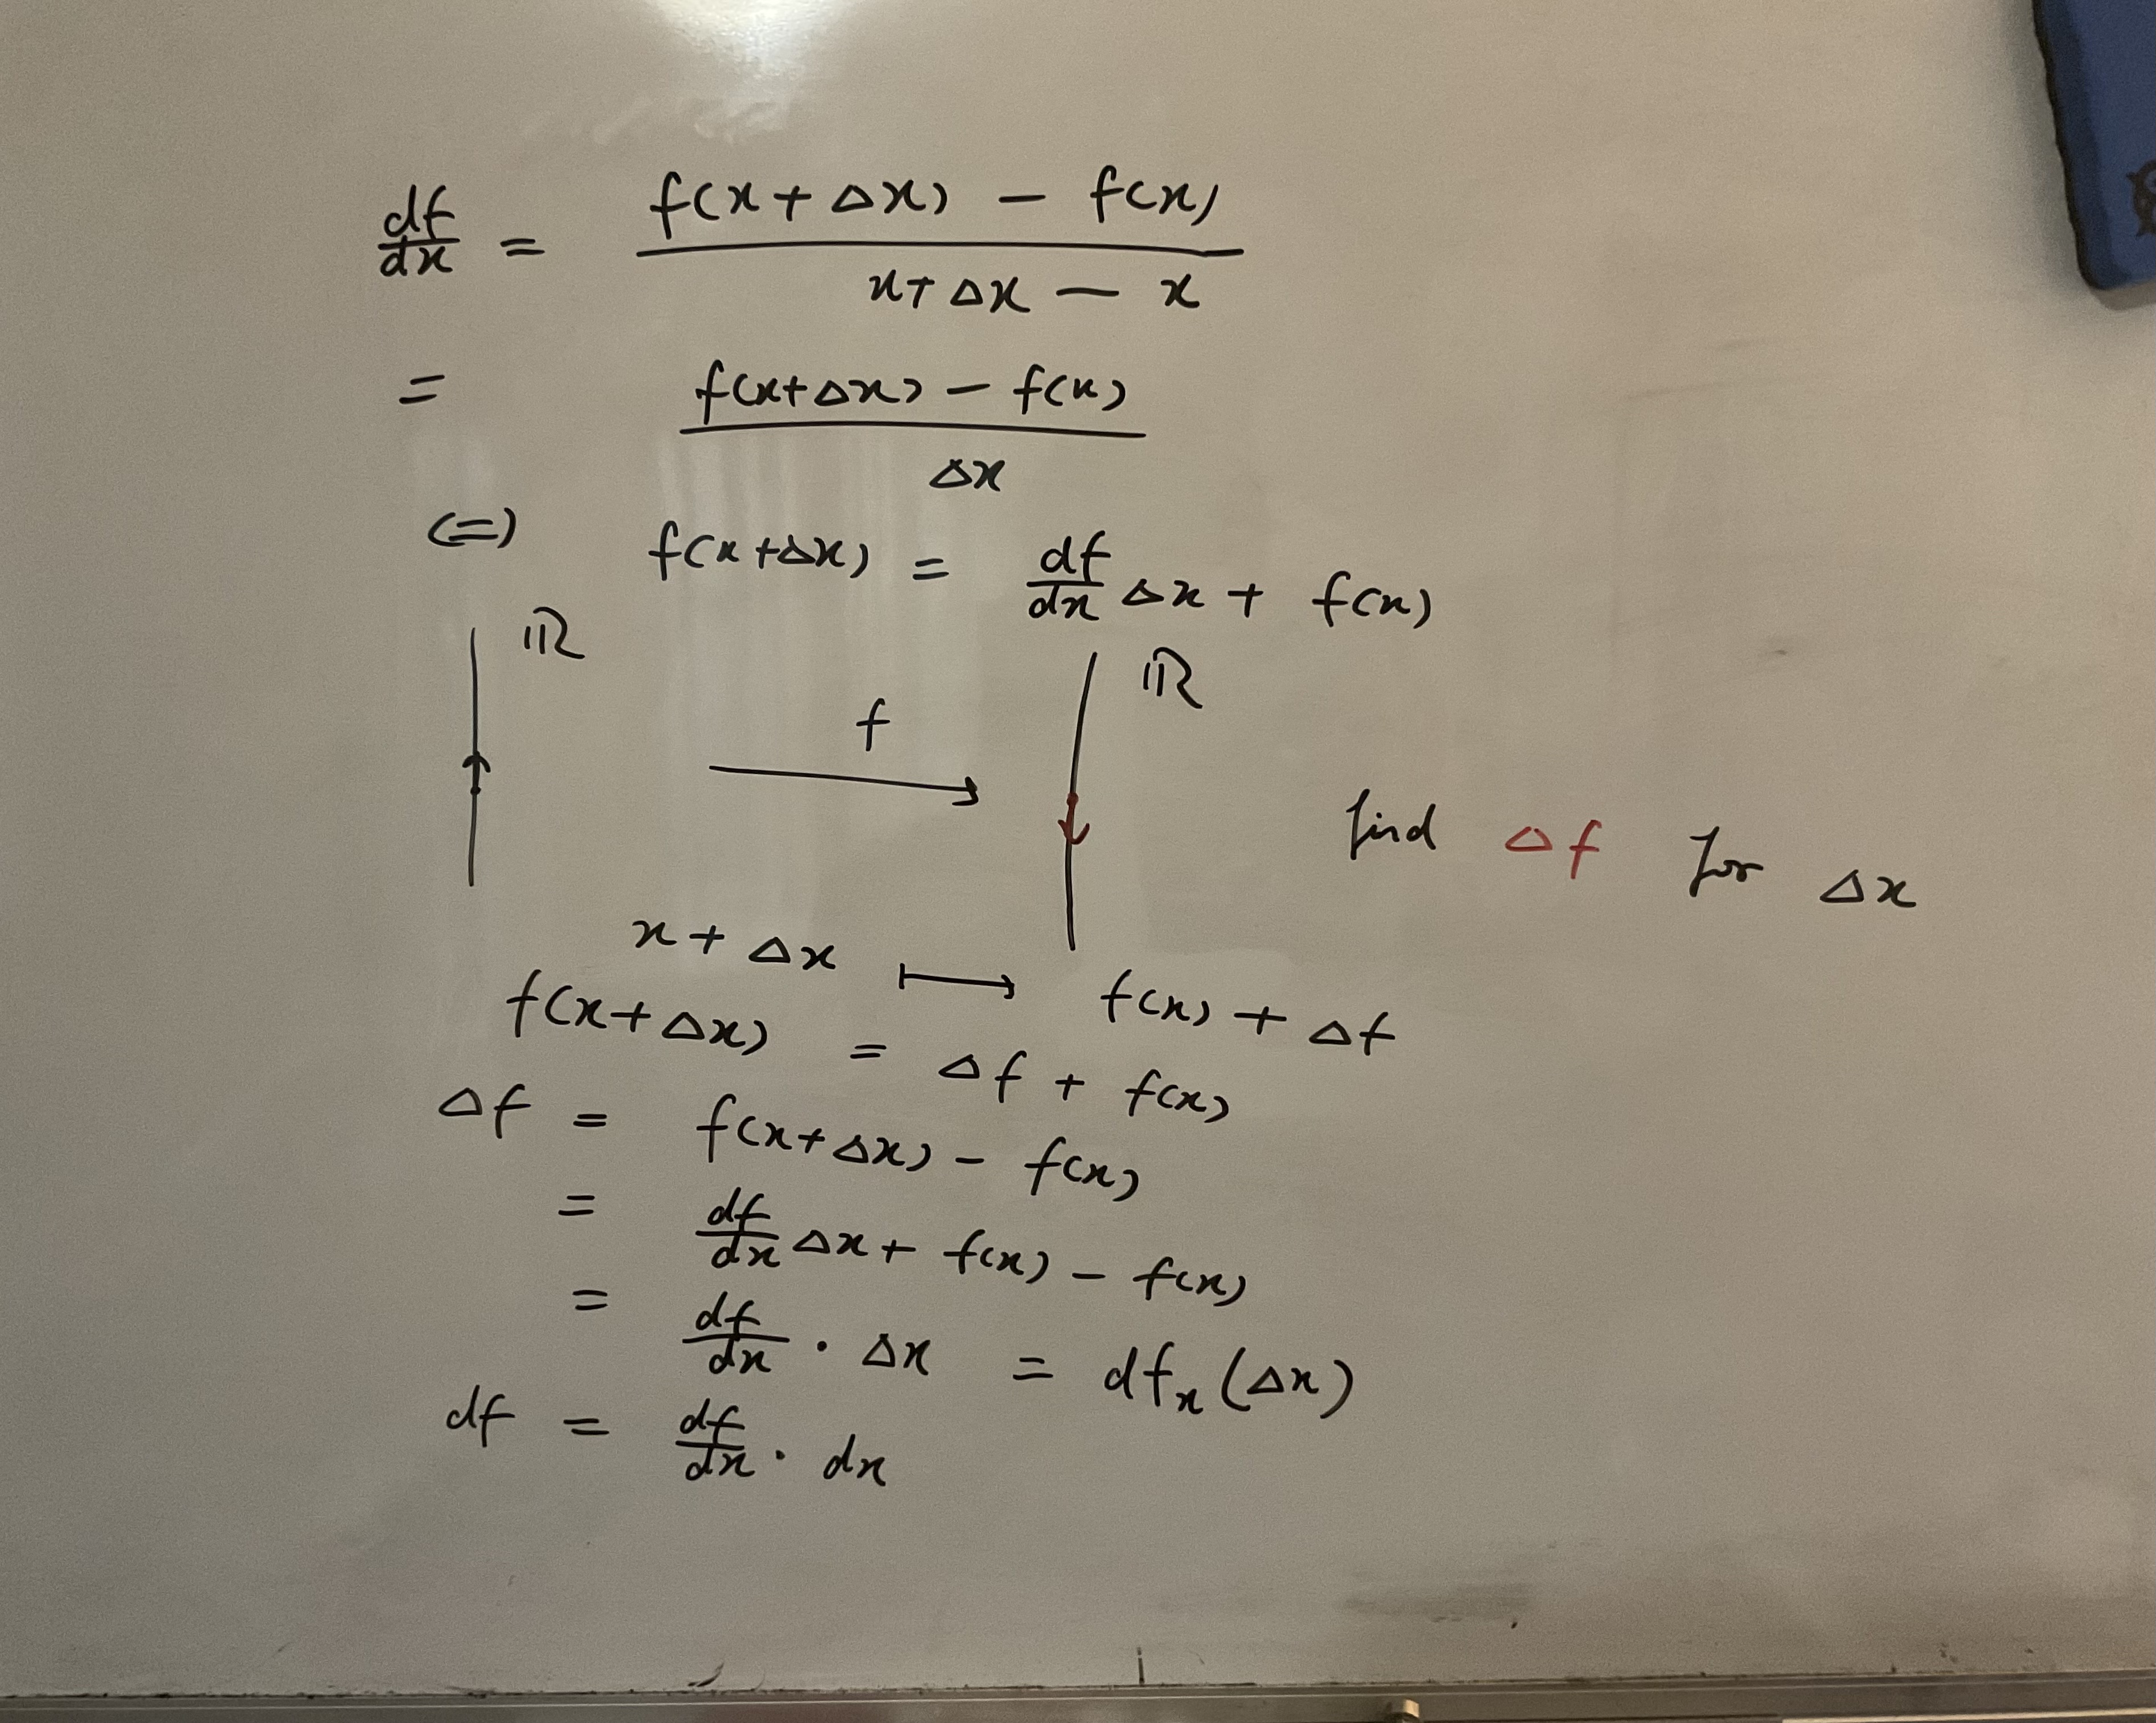 df/dx = (f(x + Δx) − f(x)) / (x + Δx − x)
= (f(x+Δx) − f(x)) / Δx
(=) f(x+Δx) = df/dx Δx + f(x)
ℝ ℝ
f
find Δf for Δx
x + Δx ↦ f(x) + Δf
f(x+Δx) = Δf + f(x)
Δf = f(x+Δx) − f(x)
= df/dx Δx + f(x) − f(x)
= df/dx · Δx = dfₓ(Δx)
df = df/dx · dx